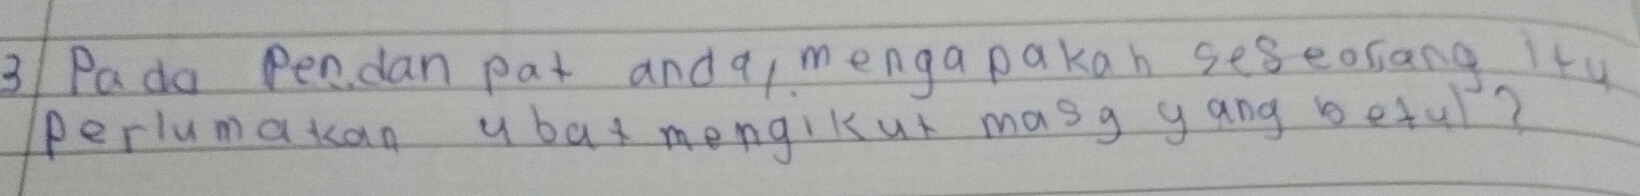 3 Pada Pendan pat anda, mengapakah seseorang itu
perlumakan ubat mengikut masg yang betul?